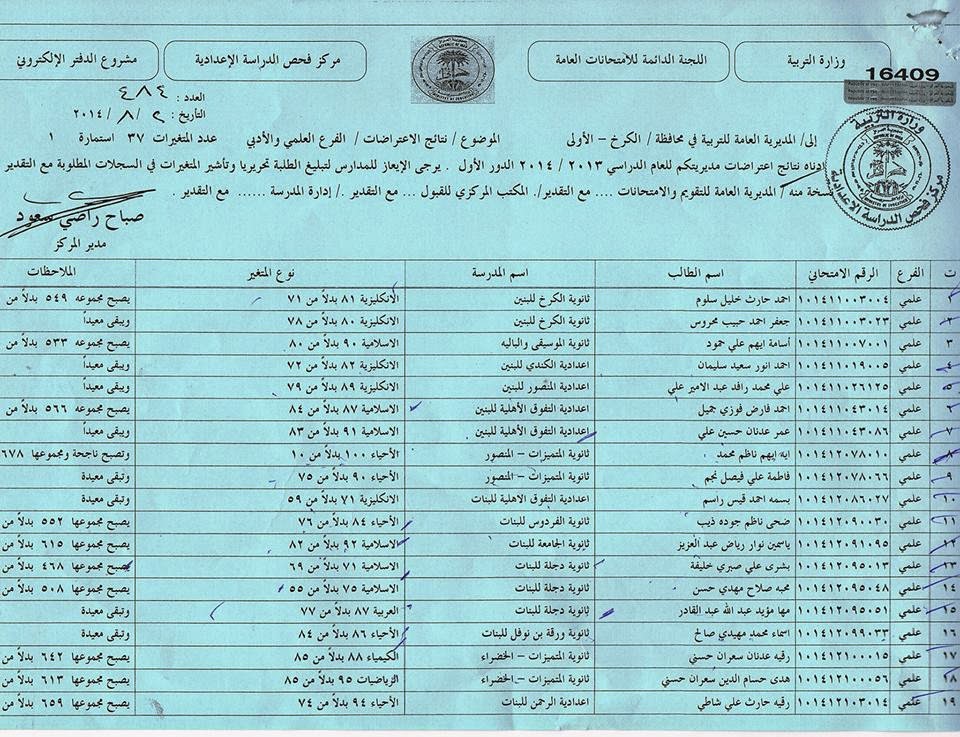 وزارة التربية
اللجنة الدائمة للأمتحانات العامة
مركز فحص الدراسة الإعدادية
مشروع الدفتر الإلكتروني
16409
العدد : ٤٨٤
التاريخ : ٢ / ٨ / ٢٠١٤
إلى/ المديرية العامة للتربية في محافظة / الكرخ – الأولى الموضوع / نتائج الاعتراضات / الفرع العلمي والأدبي عدد المتغيرات ٣٧ استمارة ١
ادناه نتائج اعتراضات مديريتكم للعام الدراسي ٢٠١٣ / ٢٠١٤ الدور الأول . يرجى الإيعاز للمدارس لتبليغ الطلبة تحريريا وتأشير المتغيرات في السجلات المطلوبة مع التقدير
نسخة منه / المديرية العامة للتقويم والامتحانات ... مع التقدير/. المكتب المركزي للقبول ... مع التقدير ./ إدارة المدرسة ...... مع التقدير
صباح راضي سعود
مدير المركز
وزارة التربية
مركز فحص الدراسة الاعدادية
ت الفرع الرقم الامتحاني اسم الطالب اسم المدرسة نوع المتغير الملاحظات
١ علمي ١٠١٤١١٠٠٣٠٠٤ احمد حارث خليل سلوم ثانوية الكرخ للبنين الانكليزية ٨١ بدلاً من ٧١ يصبح مجموعه ٥٤٩ بدلاً من
٢ علمي ١٠١٤١١٠٠٣٠٢٣ جعفر احمد حبيب محروس ثانوية الكرخ للبنين الانكليزية ٨٠ بدلاً من ٧٨ ويبقى معيداً
٣ علمي ١٠١٤١١٠٠٧٠٠١ أسامة ايهم علي حمود ثانوية الموسيقى والباليه الاسلامية ٩٠ بدلاً من ٨٠ يصبح مجموعه ٥٣٣ بدلاً من
٤ علمي ١٠١٤١١٠١٩٠٠٥ احمد انور سعيد سليمان اعدادية الكندي للبنين الانكليزية ٨٢ بدلاً من ٧٢ ويبقى معيداً
٥ علمي ١٠١٤١١٠٢٦١٢٥ علي محمد رافد عبد الامير علي اعدادية المنصور للبنين الانكليزية ٨٩ بدلاً من ٧٩ ويبقى معيداً
٦ علمي ١٠١٤١١٠٤٣٠١٤ احمد فارض فوزي جميل اعدادية التفوق الأهلية للبنين الاسلامية ٨٧ بدلاً من ٨٤ يصبح مجموعه ٥٦٦ بدلاً من
٧ علمي ١٠١٤١١٠٤٣٠٨٦ عمر عدنان حسين علي اعدادية التفوق الأهلية للبنين الاسلامية ٩١ بدلاً من ٨٣ ويبقى معيداً
٨ علمي ١٠١٤١٢٠٧٨٠١٠ ايه ايهم ناظم محمد ثانوية المتميزات – المنصور الأحياء ١٠٠ بدلاً من ١٠ وتصبح ناجحة ومجموعها ٦٧٨
٩ علمي ١٠١٤١٢٠٧٨٠٦٦ فاطمة علي فيصل نجم ثانوية المتميزات – المنصور الأحياء ٩٠ بدلاً من ٧٥ وتبقى معيدة
١٠ علمي ١٠١٤١٢٠٨٦٠٢٧ بسمه احمد قيس راسم اعدادية التفوق الاهلية للبنات الانكليزية ٧١ بدلاً من ٥٩ وتبقى معيدة
١١ علمي ١٠١٤١٢٠٩٠٠٣٠ ضحى ناظم جوده ذيب ثانوية الفردوس للبنات الأحياء ٨٤ بدلاً من ٧٦ يصبح مجموعها ٥٥٢ بدلاً من
١٢ علمي ١٠١٤١٢٠٩١٠٩٥ ياسمين نوار رياض عبد العزيز ثانوية الجامعة للبنات الاسلامية ٩٢ بدلاً من ٨٢ يصبح مجموعها ٦١٥ بدلاً من
١٣ علمي ١٠١٤١٢٠٩٥٠١٣ بشرى علي صبري خليفة ثانوية دجلة للبنات الاسلامية ٧١ بدلاً من ٦٩ يصبح مجموعها ٤٦٨ بدلاً من
١٤ علمي ١٠١٤١٢٠٩٥٠٤٨ محبه صلاح مهدي حسن ثانوية دجلة للبنات الاسلامية ٧٥ بدلاً من ٥٥ يصبح مجموعها ٥٠٨ بدلاً من
١٥ علمي ١٠١٤١٢٠٩٥٠٥١ مها مؤيد عبد الله عبد القادر ثانوية دجلة للبنات العربية ٨٧ بدلاً من ٧٧ وتبقى معيدة
١٦ علمي ١٠١٤١٢٠٩٩٠٣٣ اسماء محمد مهيدي صالح ثانوية ورقة بن نوفل للبنات الأحياء ٨٦ بدلاً من ٨٤ وتبقى معيدة
١٧ علمي ١٠١٤١٢١٠٠٠١٥ رقيه عدنان سعران حسني ثانوية المتميزات – الخضراء الكيمياء ٨٨ بدلاً من ٨٥ يصبح مجموعها ٦٤٢ بدلاً من
١٨ علمي ١٠١٤١٢١٠٠٠٥٦ هدى حسام الدين سعران حسني ثانوية المتميزات – الخضراء الرياضيات ٩٥ بدلاً من ٨٥ يصبح مجموعها ٦١٣ بدلاً من
١٩ علمي ١٠١٤١٢١٠٣٠١٤ رقيه حارث علي شاطي اعدادية الرحمن للبنات الأحياء ٩٤ بدلاً من ٧٤ يصبح مجموعها ٦٥٩ بدلاً من